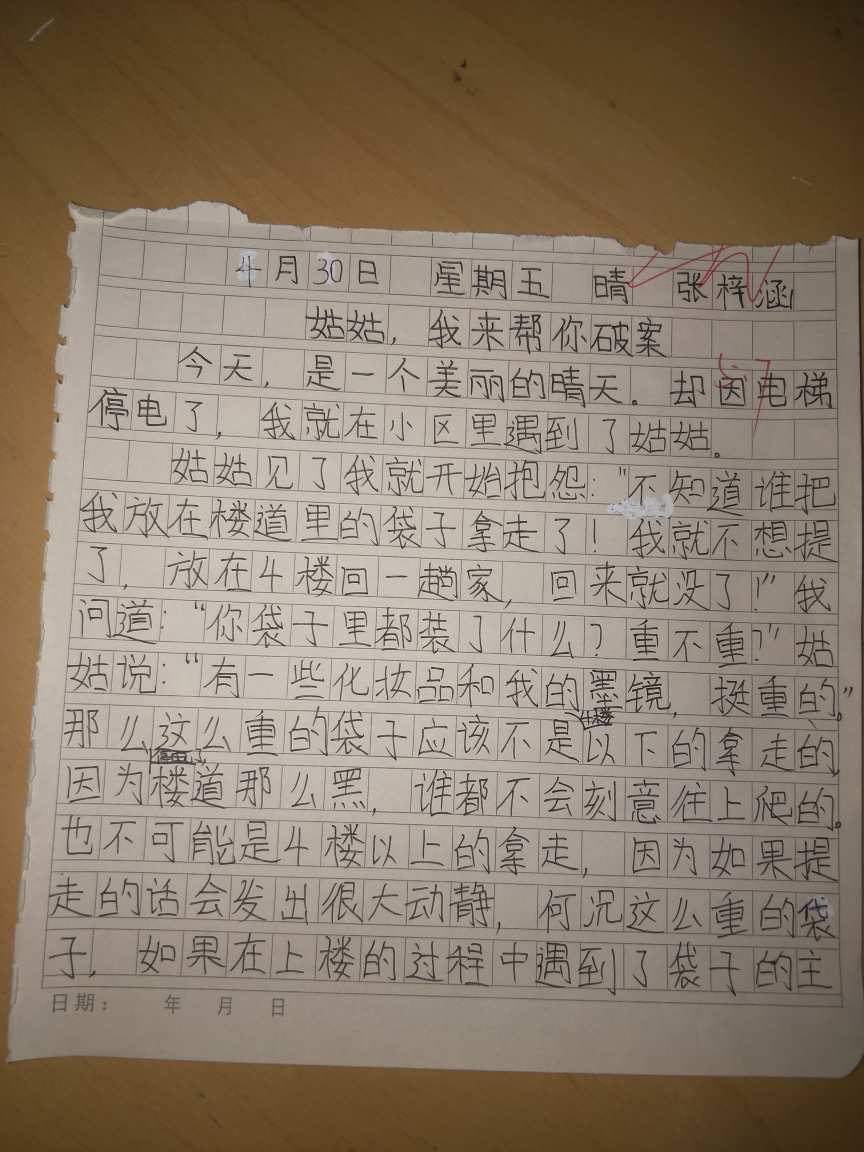 4月30日 星期五 晴 张梓涵
姑姑，我来帮你破案
今天，是一个美丽的晴天。却因电梯
停电了，我就在小区里遇到了姑姑。
姑姑见了我就开始抱怨："不知道谁把
我放在楼道里的袋子拿走了！我就不想提
了，放在4楼回一趟家，回来就没了！"我
问道："你袋子里都装了什么？重不重？"姑
姑说："有一些化妆品和我的墨镜，挺重的。"
那么这么重的袋子应该不是4楼以下的拿走的，
因为停电了楼道那么黑，谁都不会刻意往上爬的。
也不可能是4楼以上的拿走，因为如果提
走的话会发出很大动静，何况这么重的袋
子，如果在上楼的过程中遇到了袋子的主
日期： 年 月 日